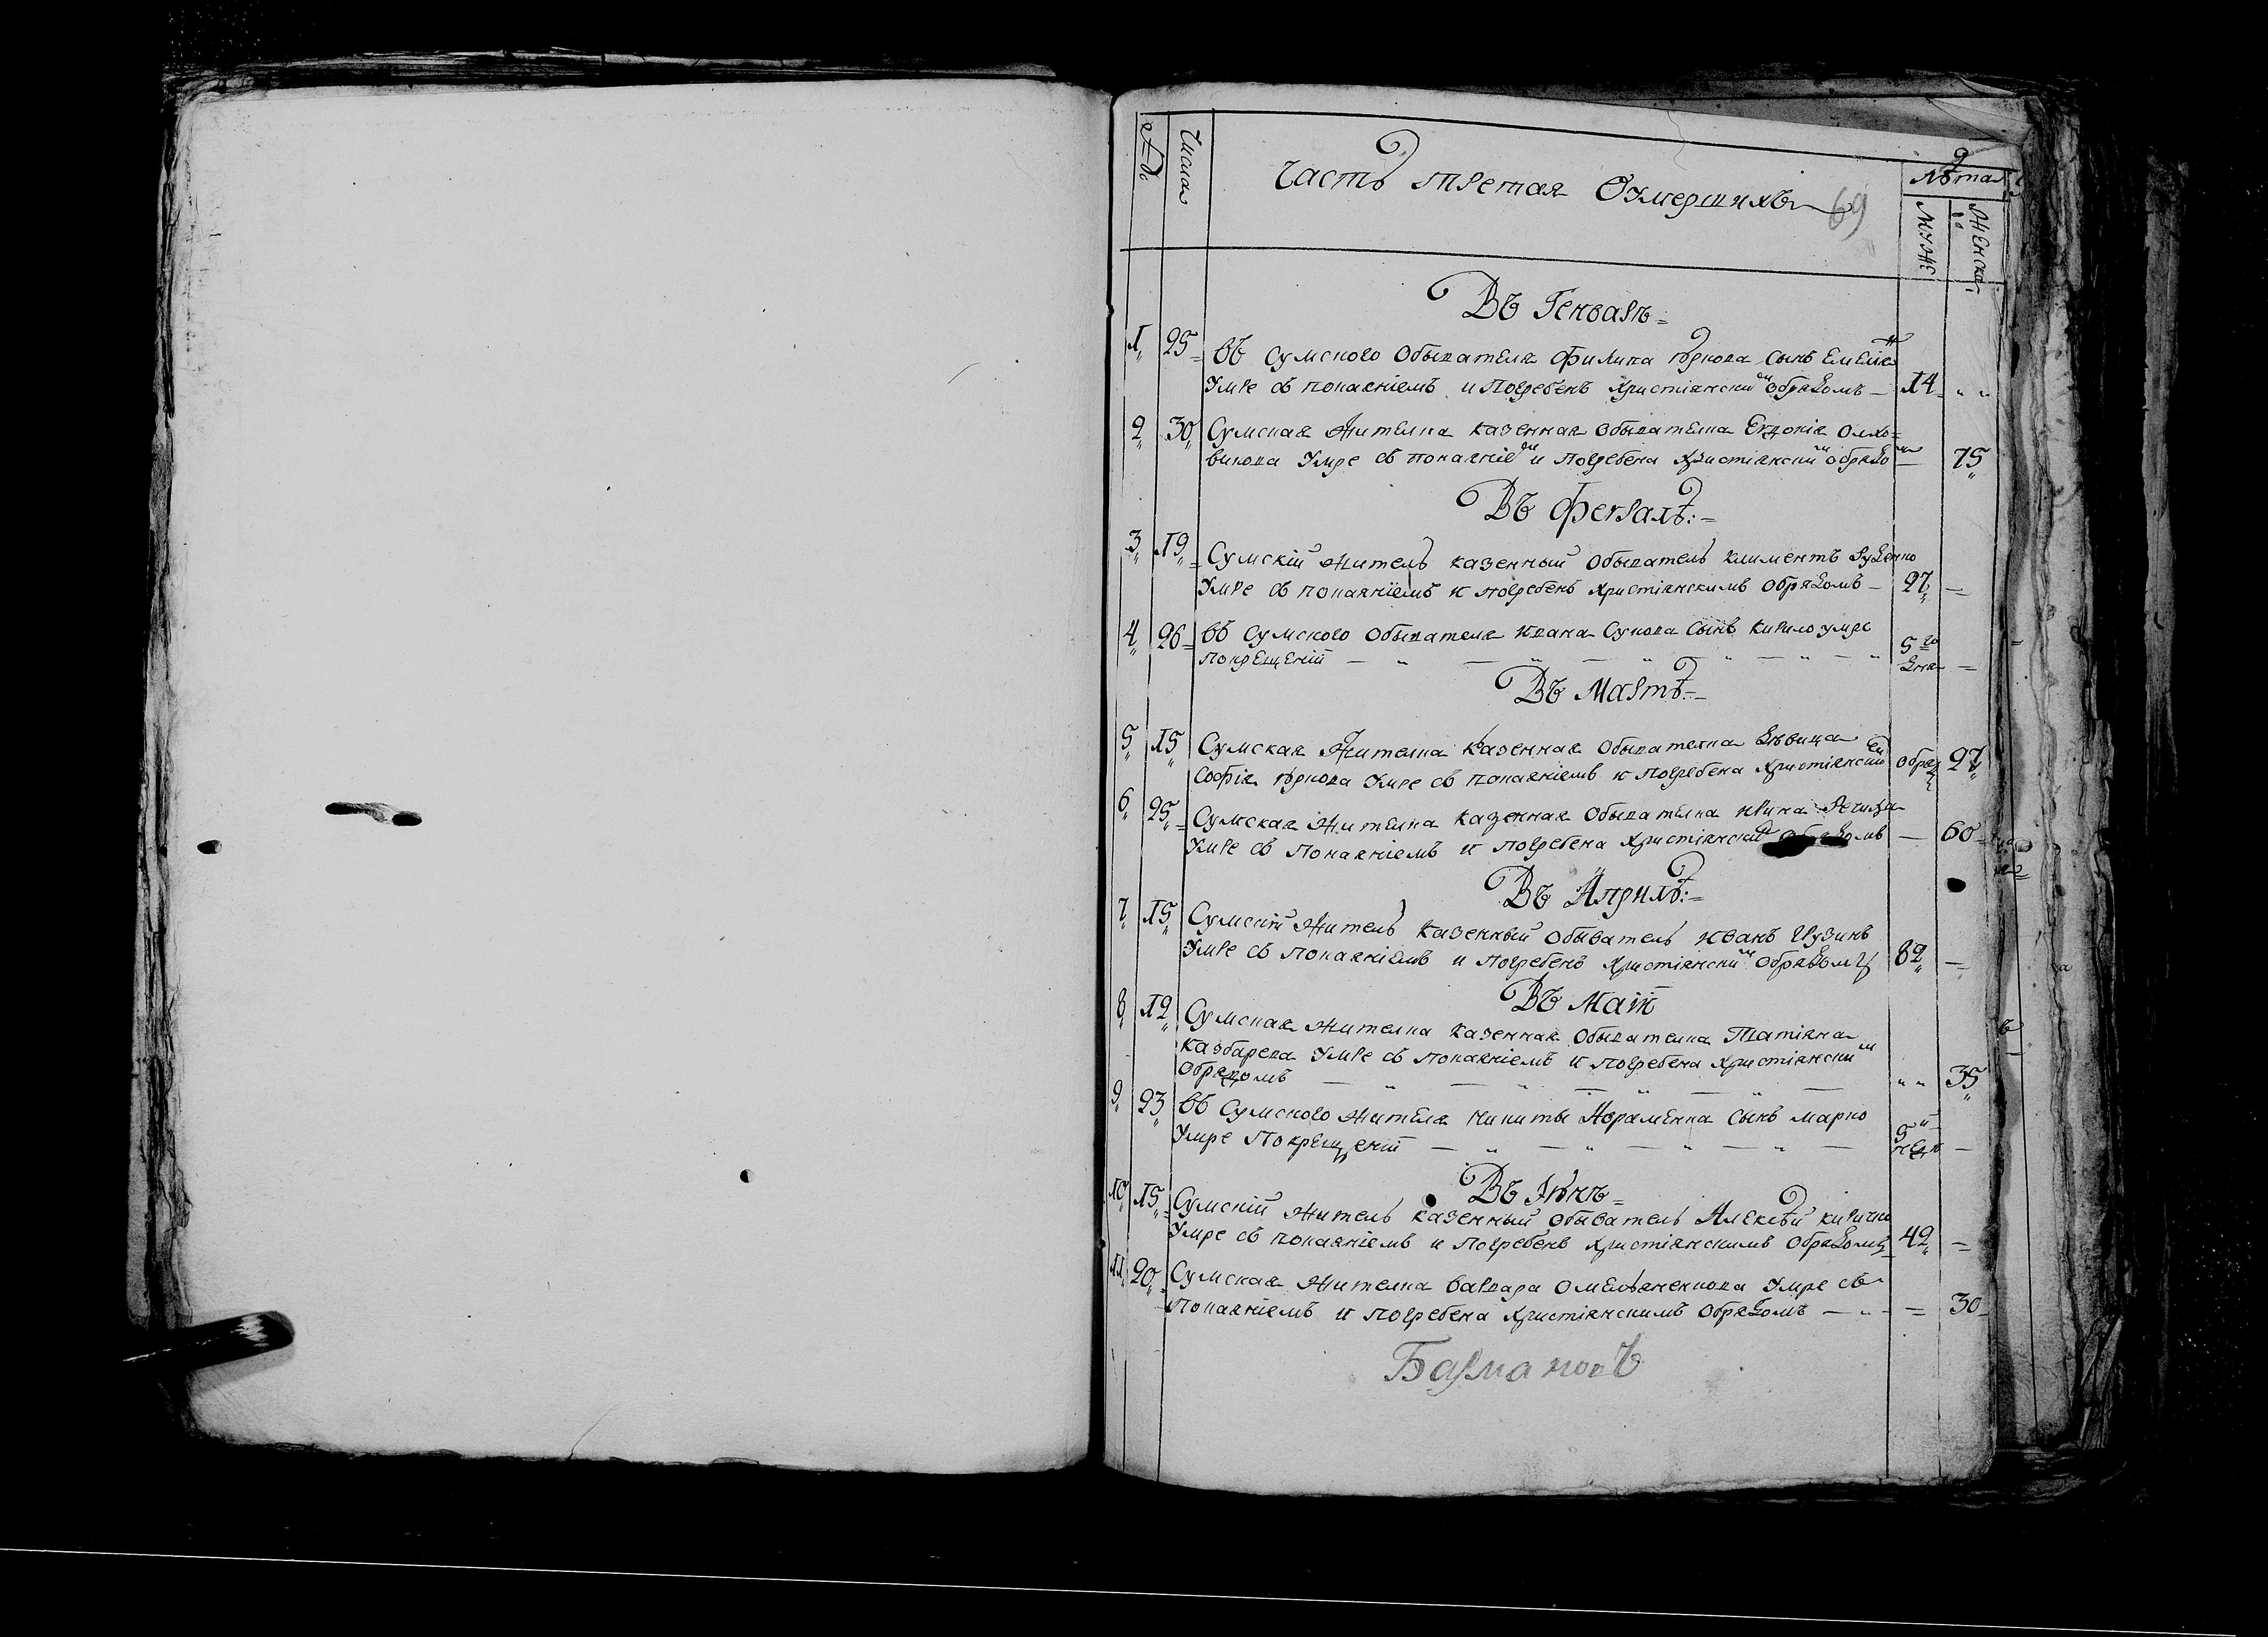 №
Числа
Часть третая Оумершихъ
69
Лѣта
Мужс
Женска
Въ Генварѣ
1 25 въ Сумского Обывателя Филипа сынъ Емелія
Умре съ покаяніемъ и Погребенъ Христіанскимъ обрядомъ 14
2 30 Сумская Жителка казенная обывателка Евдокія
Умре съ покаяніем и погребена Христіанским обрядо 75
Въ Февралѣ
3 19 Сумскій житель казенный Обыватель Климентъ Руденко
Умре съ покаяніемъ и погребенъ Христіанскимъ Обрядомъ 27
4 26 въ Сумского Обывателя Ивана Сукова Сынъ Кирило умре
покрещеніи 5 го дня
Въ Мартѣ
5 15 Сумская Жителка Казенная Обывателка Дѣвица
Софія Умре съ покаяніемъ и погребена Христіанским Обряд 27
6 25 Сумская Жителка Казенная Обывателка Ирина
Умре съ Покаяніемъ и погребена Христіанским Обрядомъ 60
Въ Априлѣ
7 15 Сумскій Житель Казенный Обыватель Иванъ Грузинъ
Умре съ Покаяніемъ и погребенъ Христіанским Обрядомъ 82
Въ Маіи
8 12 Сумская Жителка Казенная Обывателка Татіяна
Казбарева Умре съ покаяніемъ и погребена Христіански м
Обрядомъ 35
9 23 въ Сумского Жителя Никиты Авраменка Сынъ Марко
Умре Покрещеніи 5 нед
Въ Іюнѣ
10 15 Сумскій Житель казенный Обыватель Алексѣй
Умре съ покаяніемъ и Погребенъ Христіанскимъ Обрядомъ 42
11 20 Сумская Жителка Варвара Омельяненкова Умре съ
Покаяніемъ и Погребена Христіанскимъ Обрядомъ 30